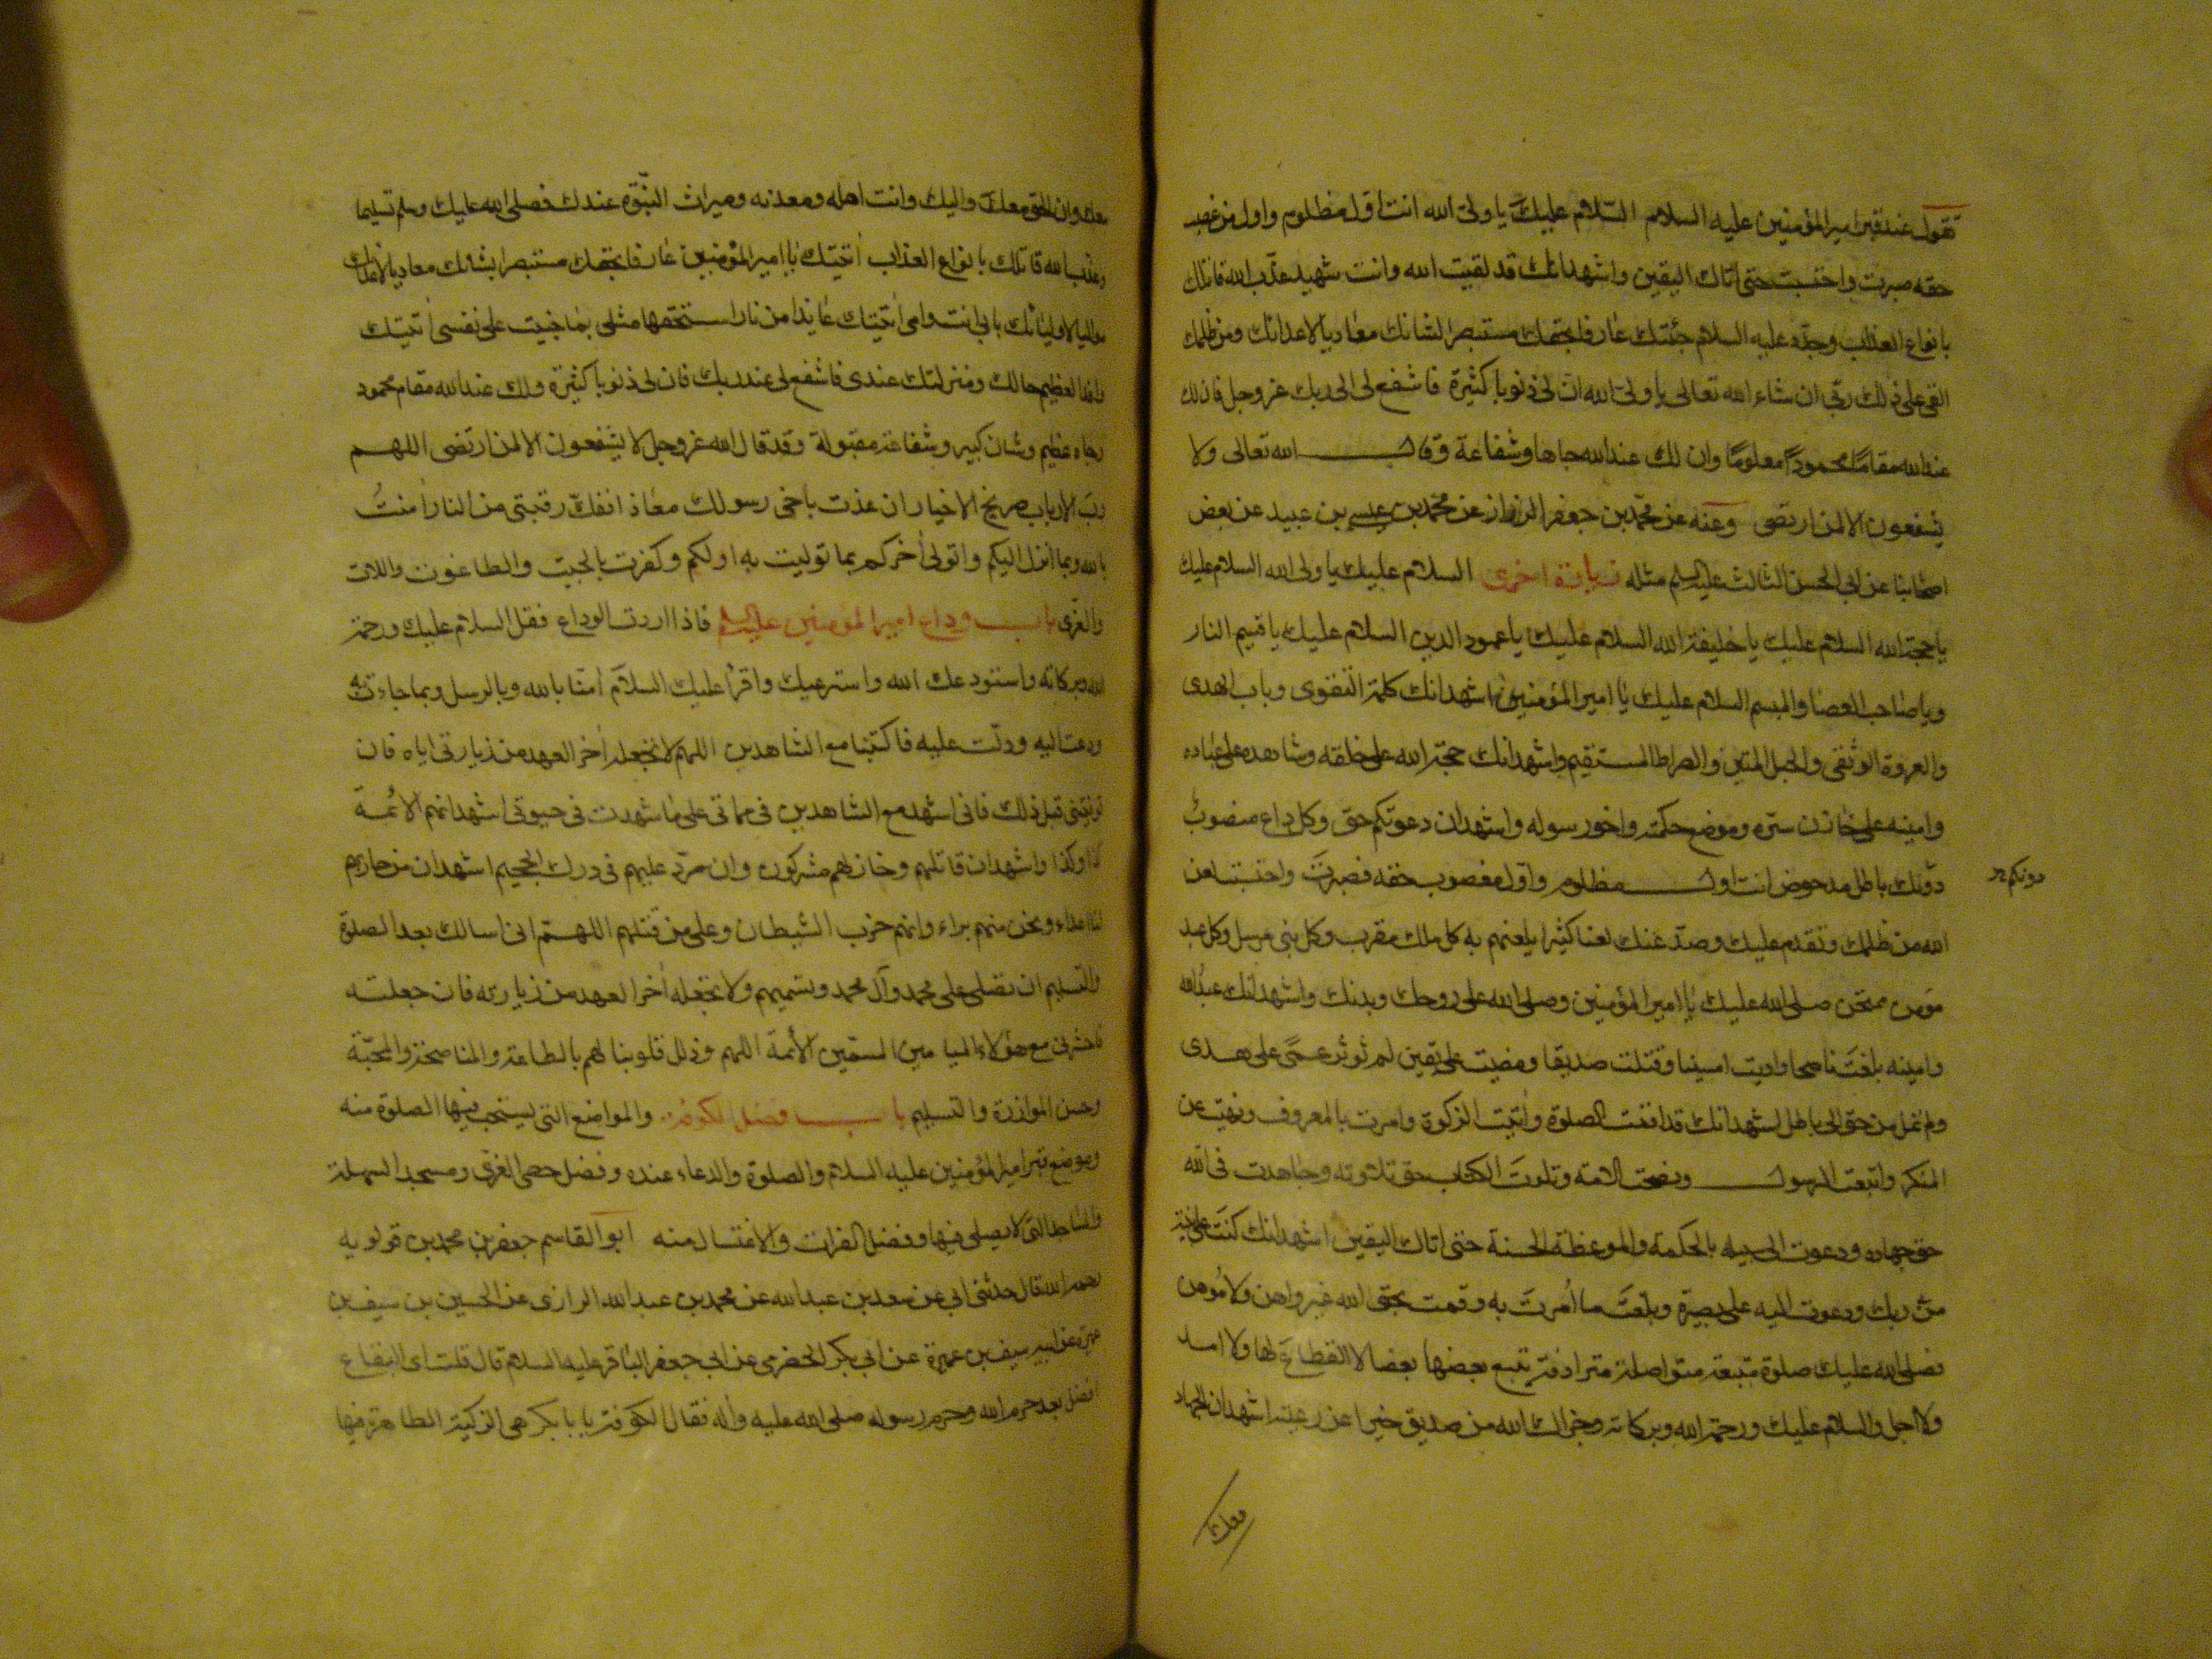 تقول عند قبر امير المؤمنين عليه السلام السلام عليك يا ولى الله انت اول مظلوم واول من غصب
حقه صبرت واحتسبت حتى اتاك اليقين واشهد انك قد لقيت الله وانت شهيد عذب الله قاتلك
بانواع العذاب وجدد عليه السلام جئتك عارفا بحقك مستبصرا بشانك معاديا لاعدائك ومن ظلمك
القى على ذلك ربى ان شاء الله تعالى يا ولى الله ان لى ذنوبا كثيرة فاشفع لى الى ربك عز وجل فان لك
عند الله مقاما محمودا معلوما وان لك عند الله جاها وشفاعة وقال الله تعالى ولا
يشفعون الا لمن ارتضى وعنه عن محمد بن جعفر الرزاز عن محمد بن عيسى بن عبيد عن بعض
اصحابنا عن ابى الحسن الثالث عليه السلم مثله زيارة اخرى السلام عليك يا ولى الله السلام عليك
يا حجة الله السلام عليك يا خليفة الله السلام عليك يا عمود الدين السلام عليك يا قسيم النار
ويا صاحب العصا والميسم السلام عليك يا امير المؤمنين اشهد انك كلمة التقوى وباب الهدى
والعروة الوثقى والحبل المتين والصراط المستقيم واشهد انك حجة الله على خلقه وشاهده على عباده
وامينه على خازن سره وموضع حكمته واخو رسوله واشهد ان دعوتكم حق وكل داع منصوب
دونك باطل مدحوض انت اول مظلوم واول مغصوب حقه فصبرت واحتسبت لعن
دونكم
الله من ظلمك وتقدم عليك وصد عنك لعنا كثيرا يلعنهم به كل ملك مقرب وكل نبى مرسل وكل عبد
مومن ممتحن صلى الله عليك يا امير المؤمنين وصلى الله على روحك وبدنك واشهد انك عبد الله
وامينه بلغت ناصحا واديت امينا وقتلت صديقا ومضيت على يقين لم تؤثر عمى على هدى
ولم تمل من حق الى باطل اشهد انك قد اقمت الصلوة واتيت الزكوة وامرت بالمعروف ونهيت عن
المنكر واتبعت الرسول ونصحت الامة وتلوت الكتاب حق تلاوته وجاهدت فى الله
حق جهاده ودعوت الى سبيله بالحكمة والموعظة الحسنة حتى اتاك اليقين اشهد انك كنت على بينة
من ربك ودعوت اليه على بصيرة وبلغت ما امرت به وقمت بحق الله غير واهن ولا موهن
فصلى الله عليك صلوة متبعة متواصلة مترادفة يتبع بعضها بعضا لا انقطاع لها ولا امد
ولا اجل والسلام عليك ورحمة الله وبركاته وجزاك الله من صديق خيرا عن رعيته اشهد ان الجهاد
معك
معك وان الحق معك واليك وانت اهله ومعدنه وميراث النبوة عندك فصلى الله عليك وسلم تسليما
وعذب الله قاتلك بانواع العذاب اتيتك يا امير المؤمنين عارفا بحقك مستبصرا بشانك معاديا لاعدائك
مواليا لاوليائك بابى انت وامى اتيتك عايذا من نار استحقها مثلى بما جنيت على نفسى اتيتك
وافدا لعظيم حالك ومنزلتك عندى فاشفع لى عند ربك فان لى ذنوبا كثيرة ولك عند الله مقام محمود
وجاه عظيم وشان كبير وشفاعة مقبولة وقد قال الله عز وجل لا يشفعون الا لمن ارتضى اللهم
رب الارباب صريخ الاخيار ان عذت باخى رسولك معاذا ففك رقبتى من النار امنت
بالله وبما انزل اليكم واتولى اخركم بما توليت به اولكم وكفرت بالجبت والطاغوت واللات
والعزى باب وداع امير المؤمنين عليه السلم فاذا اردت الوداع فقل السلام عليك ورحمة
الله وبركاته واستودعك الله واسترعيك واقرا عليك السلام امنا بالله وبالرسل وبما جاءت به
ودعت اليه ودلت عليه فاكتبنا مع الشاهدين اللهم لا تجعله اخر العهد من زيارتى اياه فان
توفيتنى قبل ذلك فانى اشهد مع الشاهدين فى مماتى على ما شهدت فى حيوتى اشهد انهم الائمة
كذا وكذا واشهد ان قاتلهم وخاذلهم مشركون وان من رد عليهم فى درك الجحيم اشهد ان من حاربهم
لنا اعداء ونحن منهم براء وانهم حزب الشيطان وعلى من قتلهم اللهم انى اسالك بعد الصلوة
والتسليم ان تصلى على محمد وآل محمد وتسميهم ولا تجعله اخر العهد من زيارته فان جعلته
فاحشرنى مع هؤلاء الميامين المسمين الائمة اللهم وذلل قلوبنا لهم بالطاعة والمناصحة والمحبة
وحسن الموازرة والتسليم باب فضل الكوفة والمواضع التى يستحب فيها الصلوة منه
وموضع قبر امير المؤمنين عليه السلام والصلوة والدعاء عنده وفضل حصى الغرى ومسجد السهلة
والمساجد التى لا يصلى فيها وفضل الفرات والاغتسال منه ابو القاسم جعفر بن محمد بن قولويه
رحمه الله قال حدثنى ابى عن سعد بن عبد الله عن محمد بن عبد الله الرازى عن الحسين بن سيف بن
عميرة عن ابيه سيف بن عميرة عن ابى بكر الحضرمى عن ابى جعفر الباقر عليه السلام قال قلت اى البقاع
افضل بعد حرم الله وحرم رسوله صلى الله عليه وآله فقال الكوفة يا با بكر هى الزكية الطاهرة فيها